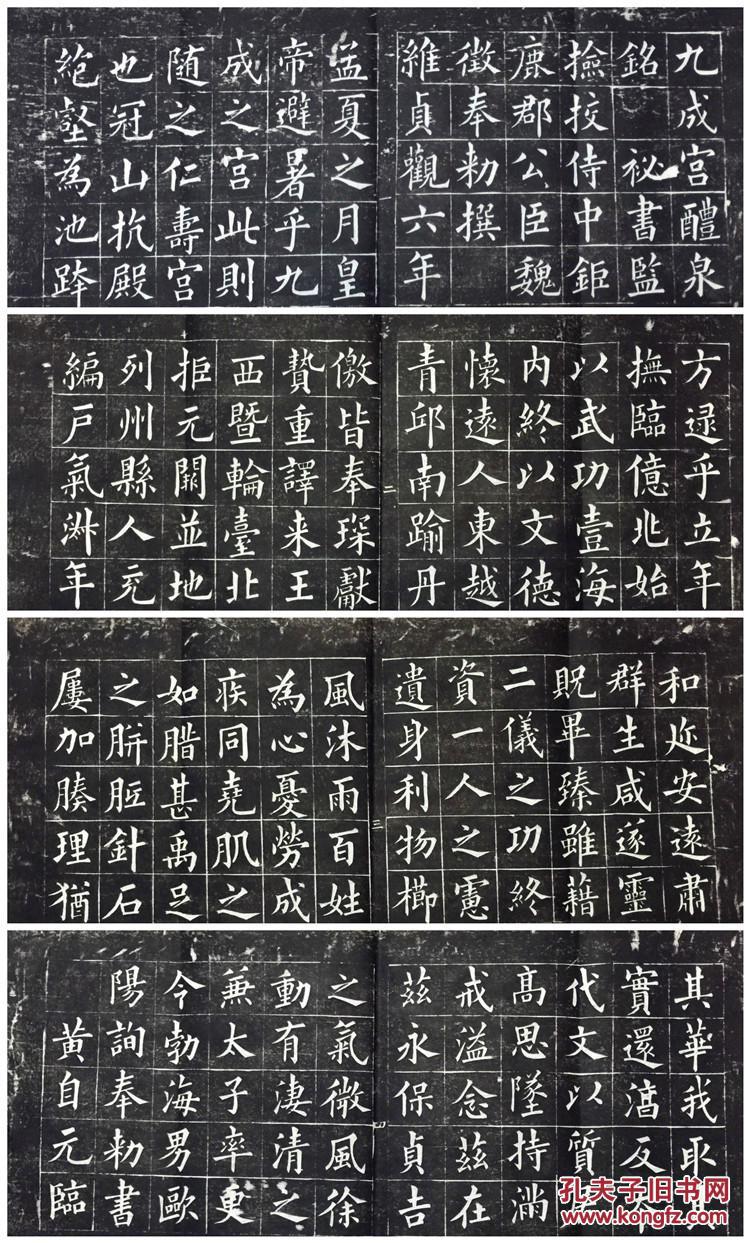 九成宫醴泉
銘 祕書監
撿挍侍中鉅
鹿郡公臣魏
徵奉勑撰
維貞觀六年
一
孟夏之月皇
帝避暑乎九
成之宫此則
随之仁壽宫
也冠山抗殿
絶壑為池跨
方逯乎立年
撫臨億兆始
以武功壹海
内終以文德
懷遠人東越
青邱南踰丹
二
儌皆奉琛獻
贄重譯来王
西暨輪臺北
拒元闕並地
列州縣人充
編戸氣淋年
和迩安遠肅
群生咸遂靈
貺畢臻雖藉
二儀之功終
資一人之慮
遺身利物櫛
三
風沐雨百姓
為心憂勞成
疾同堯肌之
如腊甚禹足
之胼胝針石
屢加腠理猶
其華我取其
實還淳反本
代文以質
髙思墜持滿
戒溢念茲在
茲永保貞吉
四
之氣微風徐
動有淒清之
兼太子率更
令勃海男歐
陽詢奉勑書
黄自元臨
孔夫子旧书网
kongfz.com